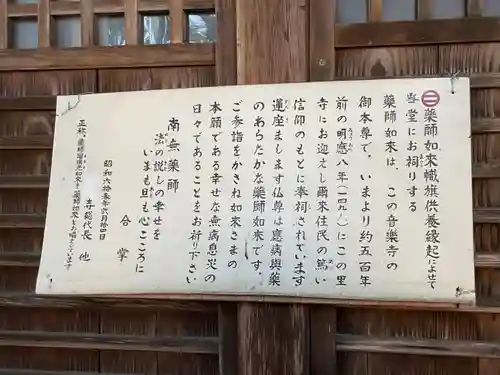 薬師如来幟旗供養縁起によせて
当堂にお祠りする
薬師如来は、この音楽寺の
御本尊で、いまより約五百年
前の明應八年(一四九九)にこの里
寺にお迎えし爾来住民の篤い
信仰のもとに奉祠されています
蓮座まします仏尊は應病與薬
のあらたかな薬師如来です。
ご参詣をかさね如来さまの
本願である幸せな無病息災の
日々であることをお祈り下さい
南無薬師
法の説しの幸せを
いまも旦も心こころに
合掌
昭和六拾年弐月拾四日
寺総代長 他
正称、薬師瑠璃光如来を薬師如来とお唱えしています